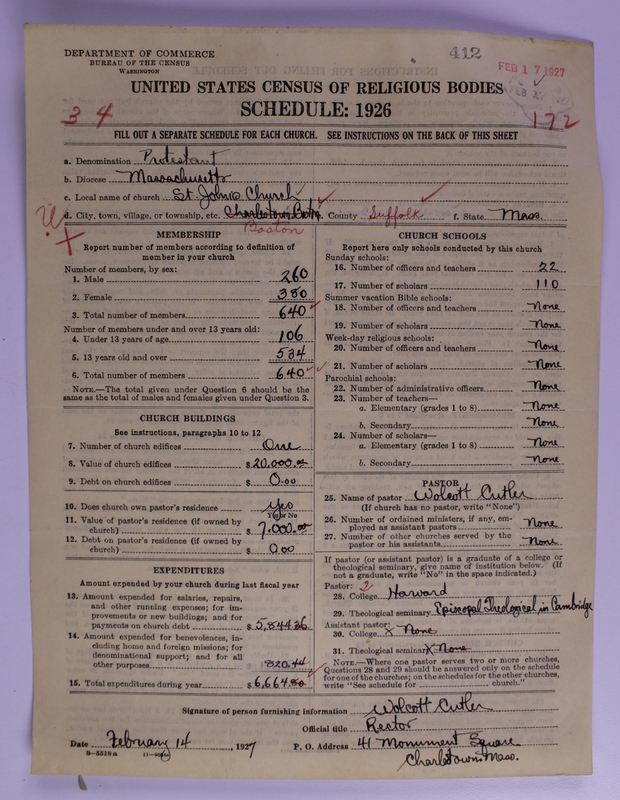 DEPARTMENT OF COMMERCE
BUREAU OF THE CENSUS
WASHINGTON
412
FEB 17 1927
UNITED STATES CENSUS OF RELIGIOUS BODIES
SCHEDULE: 1926
3 4
172
FILL OUT A SEPARATE SCHEDULE FOR EACH CHURCH. SEE INSTRUCTIONS ON THE BACK OF THIS SHEET
a. Denomination Protestant
b. Diocese Massachusetts
c. Local name of church St. John's Church
d. City, town, village, or township, etc. Charlestown, Boston. County Suffolk f. State Mass.
Boston
MEMBERSHIP
Report number of members according to definition of member in your church
Number of members, by sex:
1. Male 260
2. Female 380
3. Total number of members 640
Number of members under and over 13 years old:
4. Under 13 years of age 106
5. 13 years old and over 534
6. Total number of members 640
NOTE.—The total given under Question 6 should be the same as the total of males and females given under Question 3.
CHURCH BUILDINGS
See instructions, paragraphs 10 to 12
7. Number of church edifices One
8. Value of church edifices $20,000.00
9. Debt on church edifices $0.00
10. Does church own pastor's residence yes
Yes or No
11. Value of pastor's residence (if owned by church) $7,000.00
12. Debt on pastor's residence (if owned by church) $0.00
EXPENDITURES
Amount expended by your church during last fiscal year
13. Amount expended for salaries, repairs, and other running expenses; for improvements or new buildings; and for payments on church debt $5,844.36
14. Amount expended for benevolences, including home and foreign missions; for denominational support; and for all other purposes 820.44
15. Total expenditures during year $6,664.80
CHURCH SCHOOLS
Report here only schools conducted by this church
Sunday schools:
16. Number of officers and teachers 22
17. Number of scholars 110
Summer vacation Bible schools:
18. Number of officers and teachers None
19. Number of scholars None
Week-day religious schools:
20. Number of officers and teachers None
21. Number of scholars None
Parochial schools:
22. Number of administrative officers None
23. Number of teachers—
a. Elementary (grades 1 to 8) None
b. Secondary None
24. Number of scholars—
a. Elementary (grades 1 to 8) None
b. Secondary None
PASTOR
25. Name of pastor Wolcott Cutler
(If church has no pastor, write "None")
26. Number of ordained ministers, if any, employed as assistant pastors None
27. Number of other churches served by the pastor or his assistants None
If pastor (or assistant pastor) is a graduate of a college or theological seminary, give name of institution below. (If not a graduate, write "No" in the space indicated.)
Pastor: 2
28. College Harvard
29. Theological seminary Episcopal Theological in Cambridge
Assistant pastor:
30. College x None
31. Theological seminary x None
NOTE.—Where one pastor serves two or more churches, Questions 28 and 29 should be answered only on the schedule for one of the churches; on the schedules for the other churches, write "See schedule for church."
Signature of person furnishing information Wolcott Cutler
Official title Rector
Date February 14, 1927 P. O. Address 41 Monument Square
Charlestown, Mass.
8—5518 a